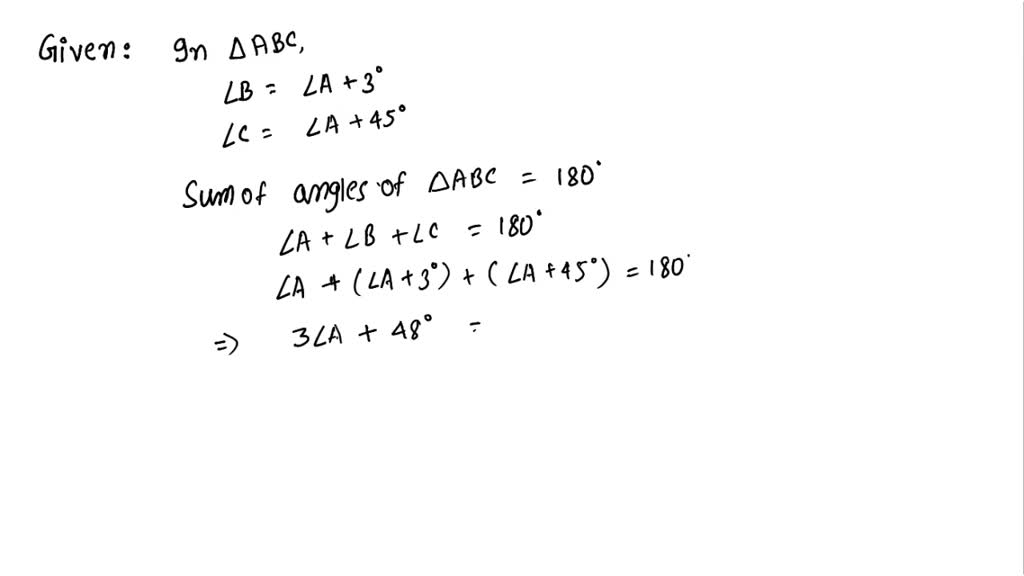 Given: In △ABC,
∠B = ∠A + 3°
∠C = ∠A + 45°
Sum of angles of △ABC = 180°
∠A + ∠B + ∠C = 180°
∠A + (∠A + 3°) + (∠A + 45°) = 180°
⇒ 3∠A + 48° =